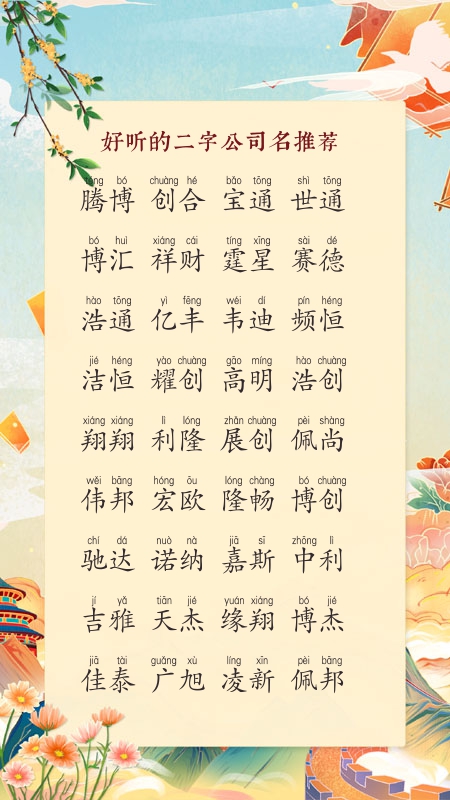 好听的二字公司名推荐
téng bó chuàng hé bǎo tōng shì tōng
腾博 创合 宝通 世通
bó huì xiáng cái tíng xīng sài dé
博汇 祥财 霆星 赛德
hào tōng yì fēng wéi dí pín héng
浩通 亿丰 韦迪 频恒
jié héng yào chuàng gāo míng hào chuàng
洁恒 耀创 高明 浩创
xiáng xiáng lì lóng zhǎn chuàng pèi shàng
翔翔 利隆 展创 佩尚
wěi bāng hóng ōu lóng chàng bó chuàng
伟邦 宏欧 隆畅 博创
chí dá nuò nà jiā sī zhōng lì
驰达 诺纳 嘉斯 中利
jí yǎ tiān jié yuán xiáng bó jié
吉雅 天杰 缘翔 博杰
jiā tài guǎng xù líng xīn pèi bāng
佳泰 广旭 凌新 佩邦